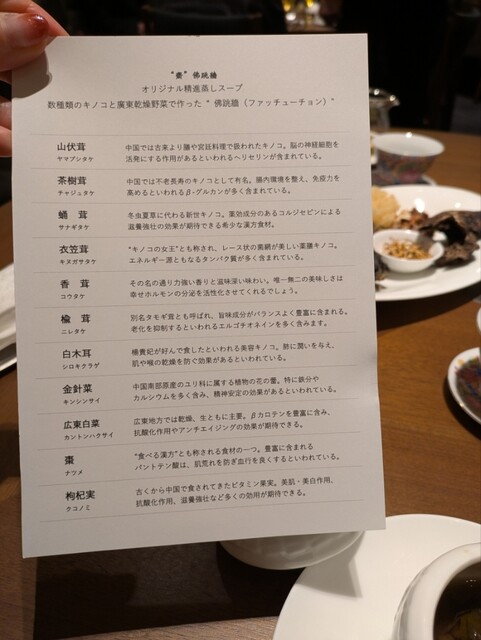 佛跳牆
オリジナル精進蒸しスープ
数種類のキノコと廣東乾燥野菜で作った“ 佛跳牆（ファッチューチョン）”
山伏茸
ヤマブシタケ
中国では古来より膳や宮廷料理で扱われたキノコ。脳の神経細胞を
活発にする作用があるといわれるヘリセリンが含まれている。
茶樹茸
チャジュタケ
中国では不老長寿のキノコとして有名。腸内環境を整え、免疫力を
高めるといわれるβ-グルカンが多く含まれている。
蛹 茸
サナギタケ
冬虫夏草に代わる新世キノコ。薬効成分のあるコルジセピンによる
滋養強壮の効果が期待できる希少な漢方食材。
衣笠茸
キヌガサタケ
“キノコの女王”とも称され、レース状の菌網が美しい薬膳キノコ。
エネルギー源ともなるタンパク質が多く含まれている。
香 茸
コウタケ
その名の通り力強い香りと滋味深い味わい。唯一無二の美味しさは
幸せホルモンの分泌を活性化させてくれるでしょう。
楡 茸
ニレタケ
別名タモギ茸とも呼ばれ、旨味成分がバランスよく豊富に含まれる。
老化を抑制するといわれるエルゴチオネインを多く含みます。
白木耳
シロキクラゲ
楊貴妃が好んで食したといわれる美容キノコ。肺に潤いを与え、
肌や喉の乾燥を防ぐ効果があるといわれている。
金針菜
キンシンサイ
中国南部原産のユリ科に属する植物の花の蕾。特に鉄分や
カルシウムを多く含み、精神安定の効果があるといわれている。
広東白菜
カントンハクサイ
広東地方では乾燥、生ともに主要。βカロテンを豊富に含み、
抗酸化作用やアンチエイジングの効果が期待できる。
棗
ナツメ
“食べる漢方”とも称される食材の一つ。豊富に含まれる
パントテン酸は、肌荒れを防ぎ血行を良くするといわれている。
枸杞実
クコノミ
古くから中国で食されてきたビタミン果実。美肌・美白作用、
抗酸化作用、滋養強壮など多くの効用が期待できる。